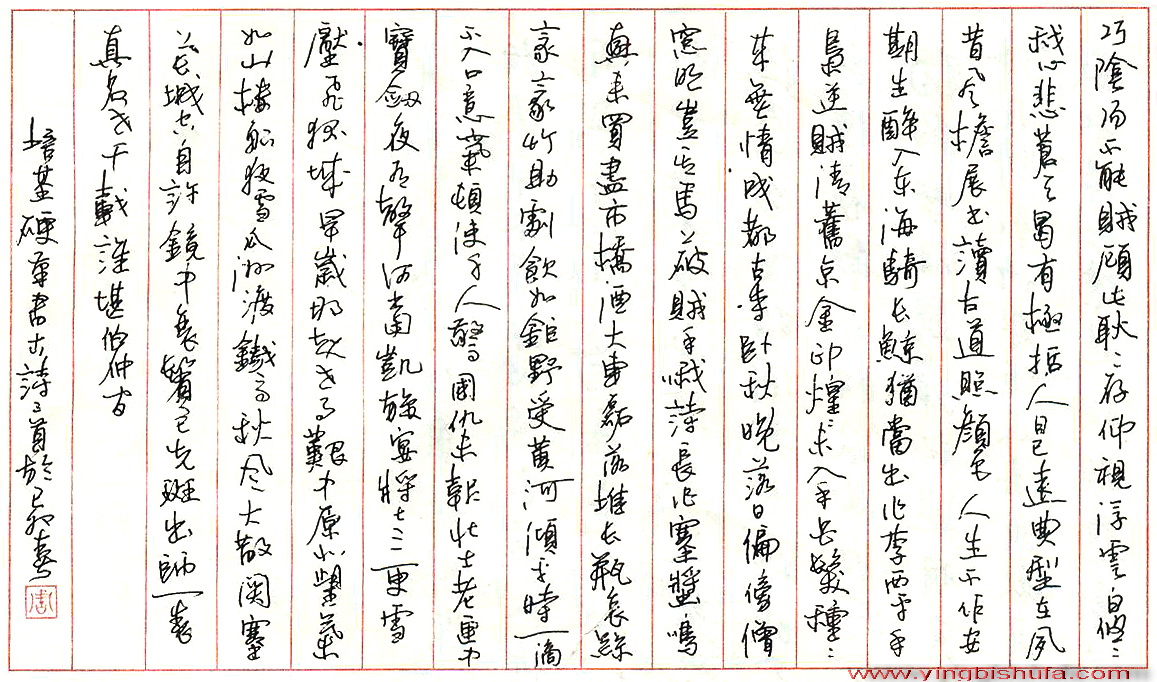 巧陰陽不能賊顧此耿々存仰視浮雲白悠々
我心悲蒼天曷有極哲人日已遠典型在夙
昔風檐展書讀古道照顏色人生不作安
期生醉入東海騎長鯨猶當出作李西平手
梟逆賊清舊京金印煌々未入手白髮種々
來無情成都古寺臥秋晚落日偏傍僧
窓明豈其馬上破賊手哦詩長作寒螿鳴
興來買盡市橋酒大車磊落堆長瓶哀絲
豪竹助劇飲如鉅野受黃河傾平時一滴
不入口意氣頓使千人驚國仇未報壯士老匣中
寶劒夜有聲何當凱旋宴將士三更雪
壓飛狐城早歲那知世事艱中原北望氣
如山樓船夜雪瓜洲渡鐵馬秋風大散関塞
上長城空自許鏡中衰鬢已先斑出師一表
真名世千載誰堪伯仲间
培基硬筆書古詩三首於己卯春
周
www.yingbishufa.com